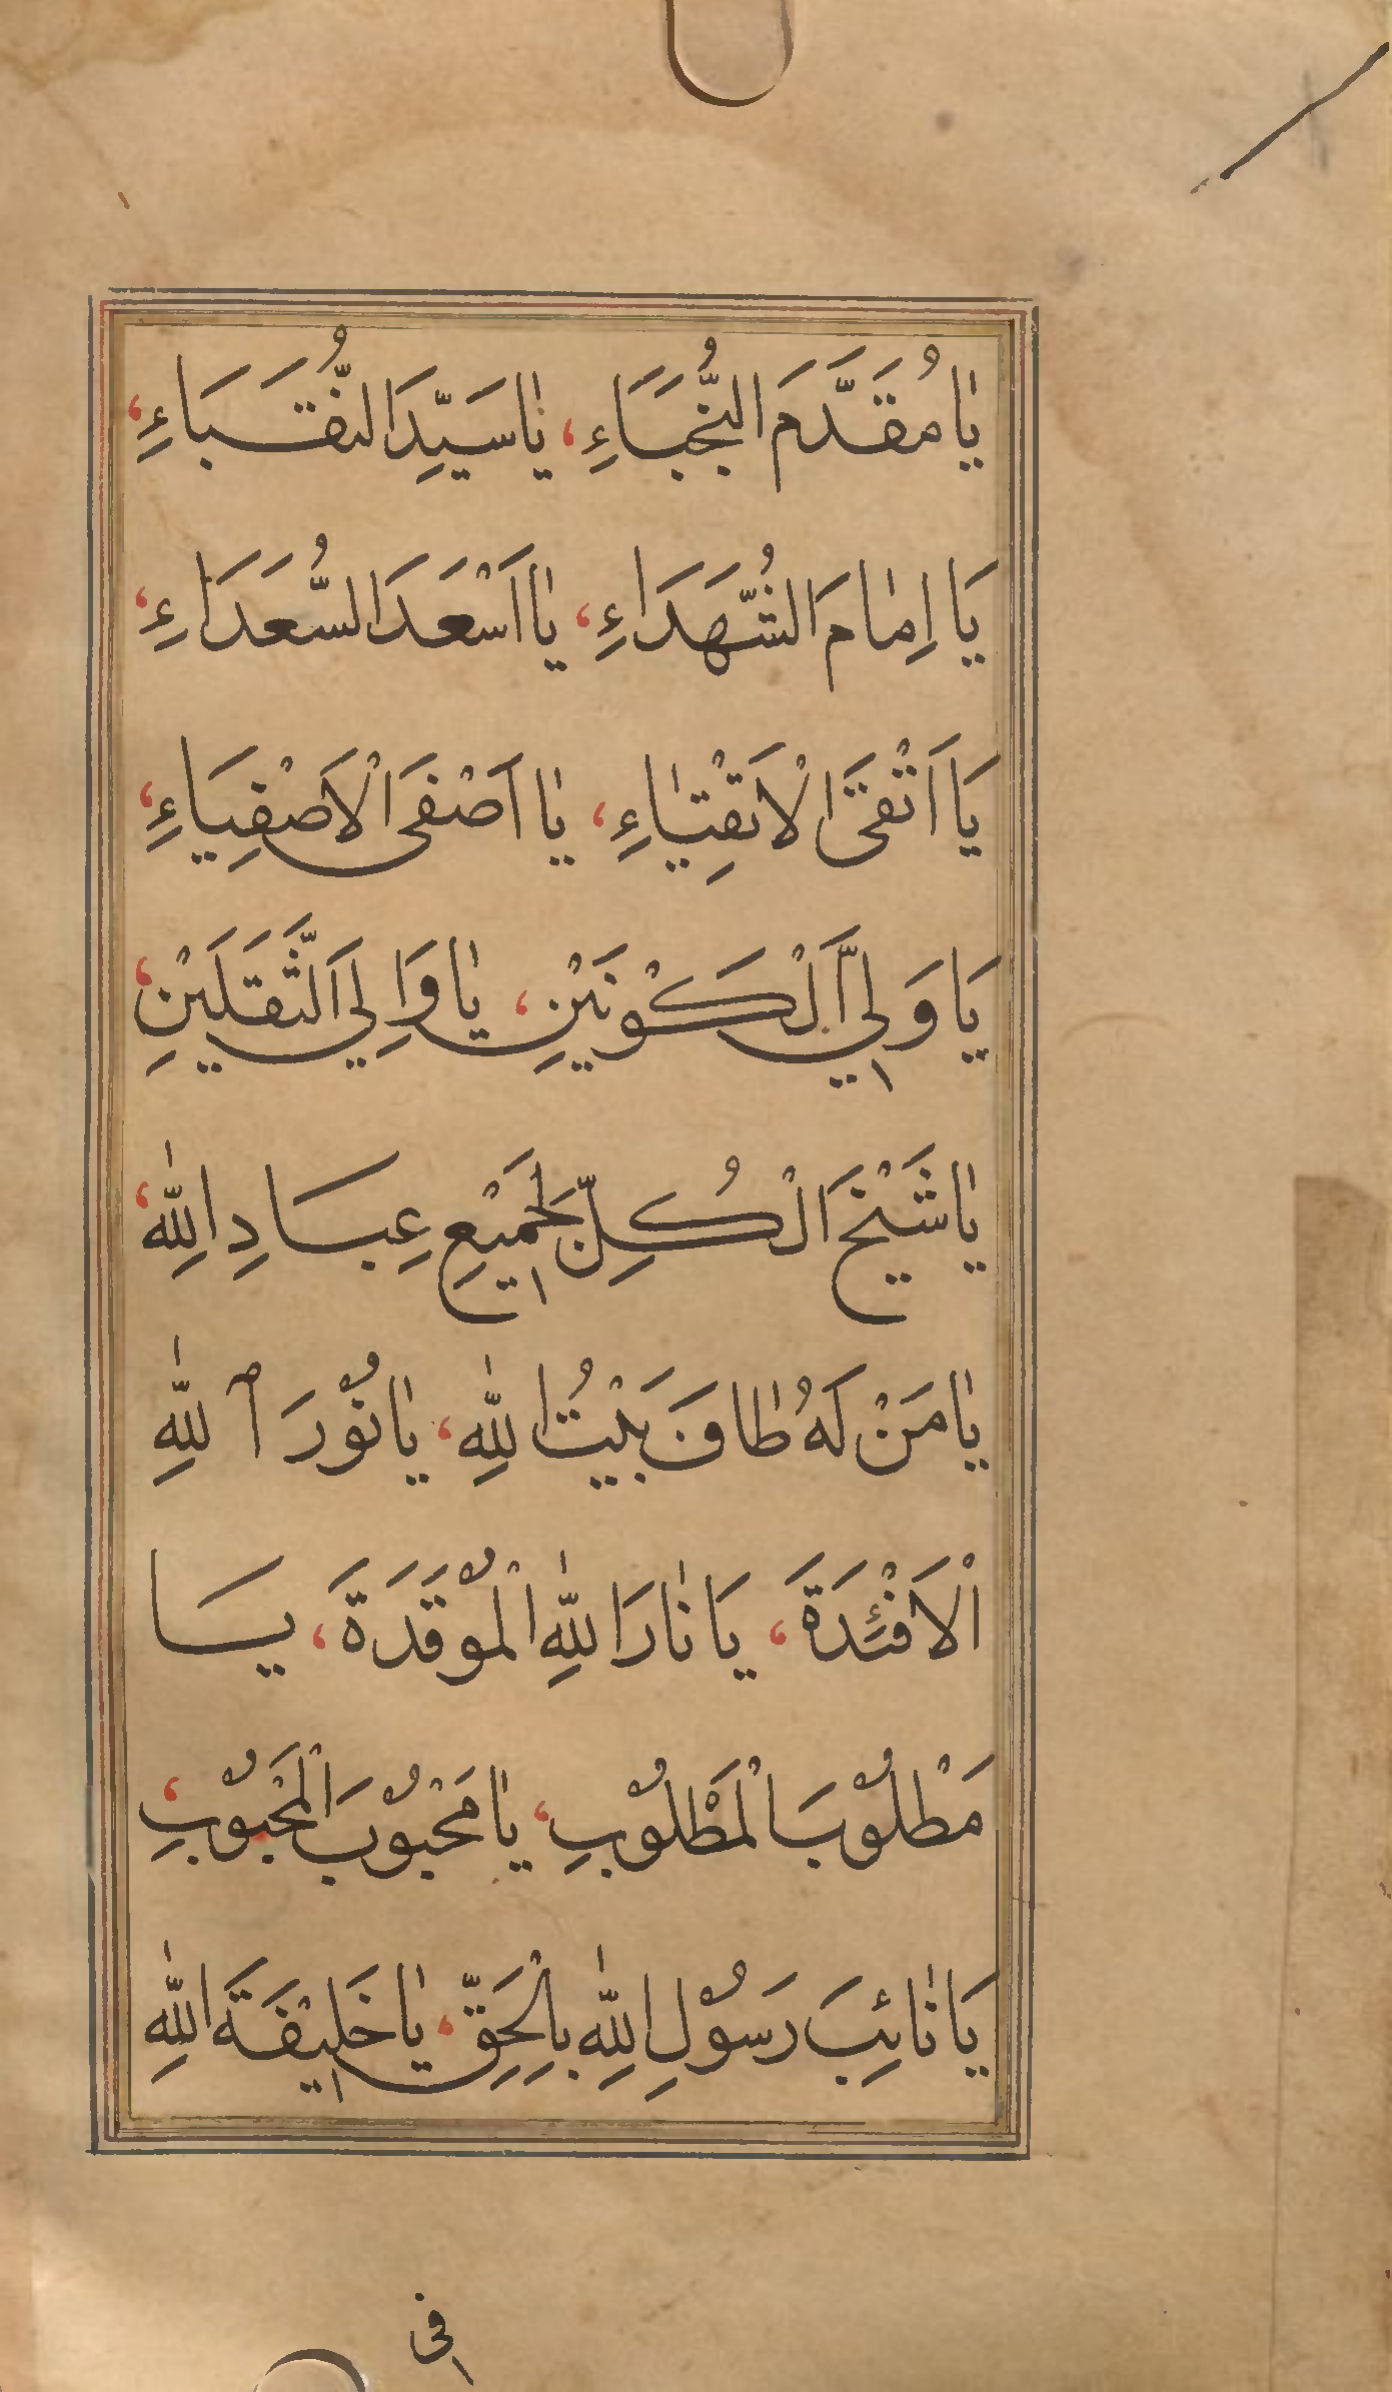 يَا مُقَدَّمَ النُّجَبَاءِ، يَا سَيِّدَ النُّقَبَاءِ،
يَا اِمَامَ الشُّهَدَاءِ، يَا اَسْعَدَ السُّعَدَاءِ،
يَا اَتْقَى الْاَتْقِيَاءِ، يَا اَصْفَى الْاَصْفِيَاءِ،
يَا وَلِيَّ الْكَوْنَيْنِ، يَا وَالِيَ الثَّقَلَيْنِ،
يَا شَيْخَ الْكُلِّ لِجَمِيْعِ عِبَادِ اللهِ،
يَا مَنْ لَهُ طَافَ بَيْتُ اللهِ، يَا نُوْرَ اللهِ
الْاَفْئِدَةَ، يَا نَارَ اللهِ الْمُوْقَدَةَ، يَا
مَطْلُوْبَ الْمَطْلُوْبِ، يَا مَحْبُوْبَ الْمَحْبُوْبِ،
يَا نَائِبَ رَسُوْلِ اللهِ بِالْحَقِّ، يَا خَلِيْفَةَ اللهِ
فى